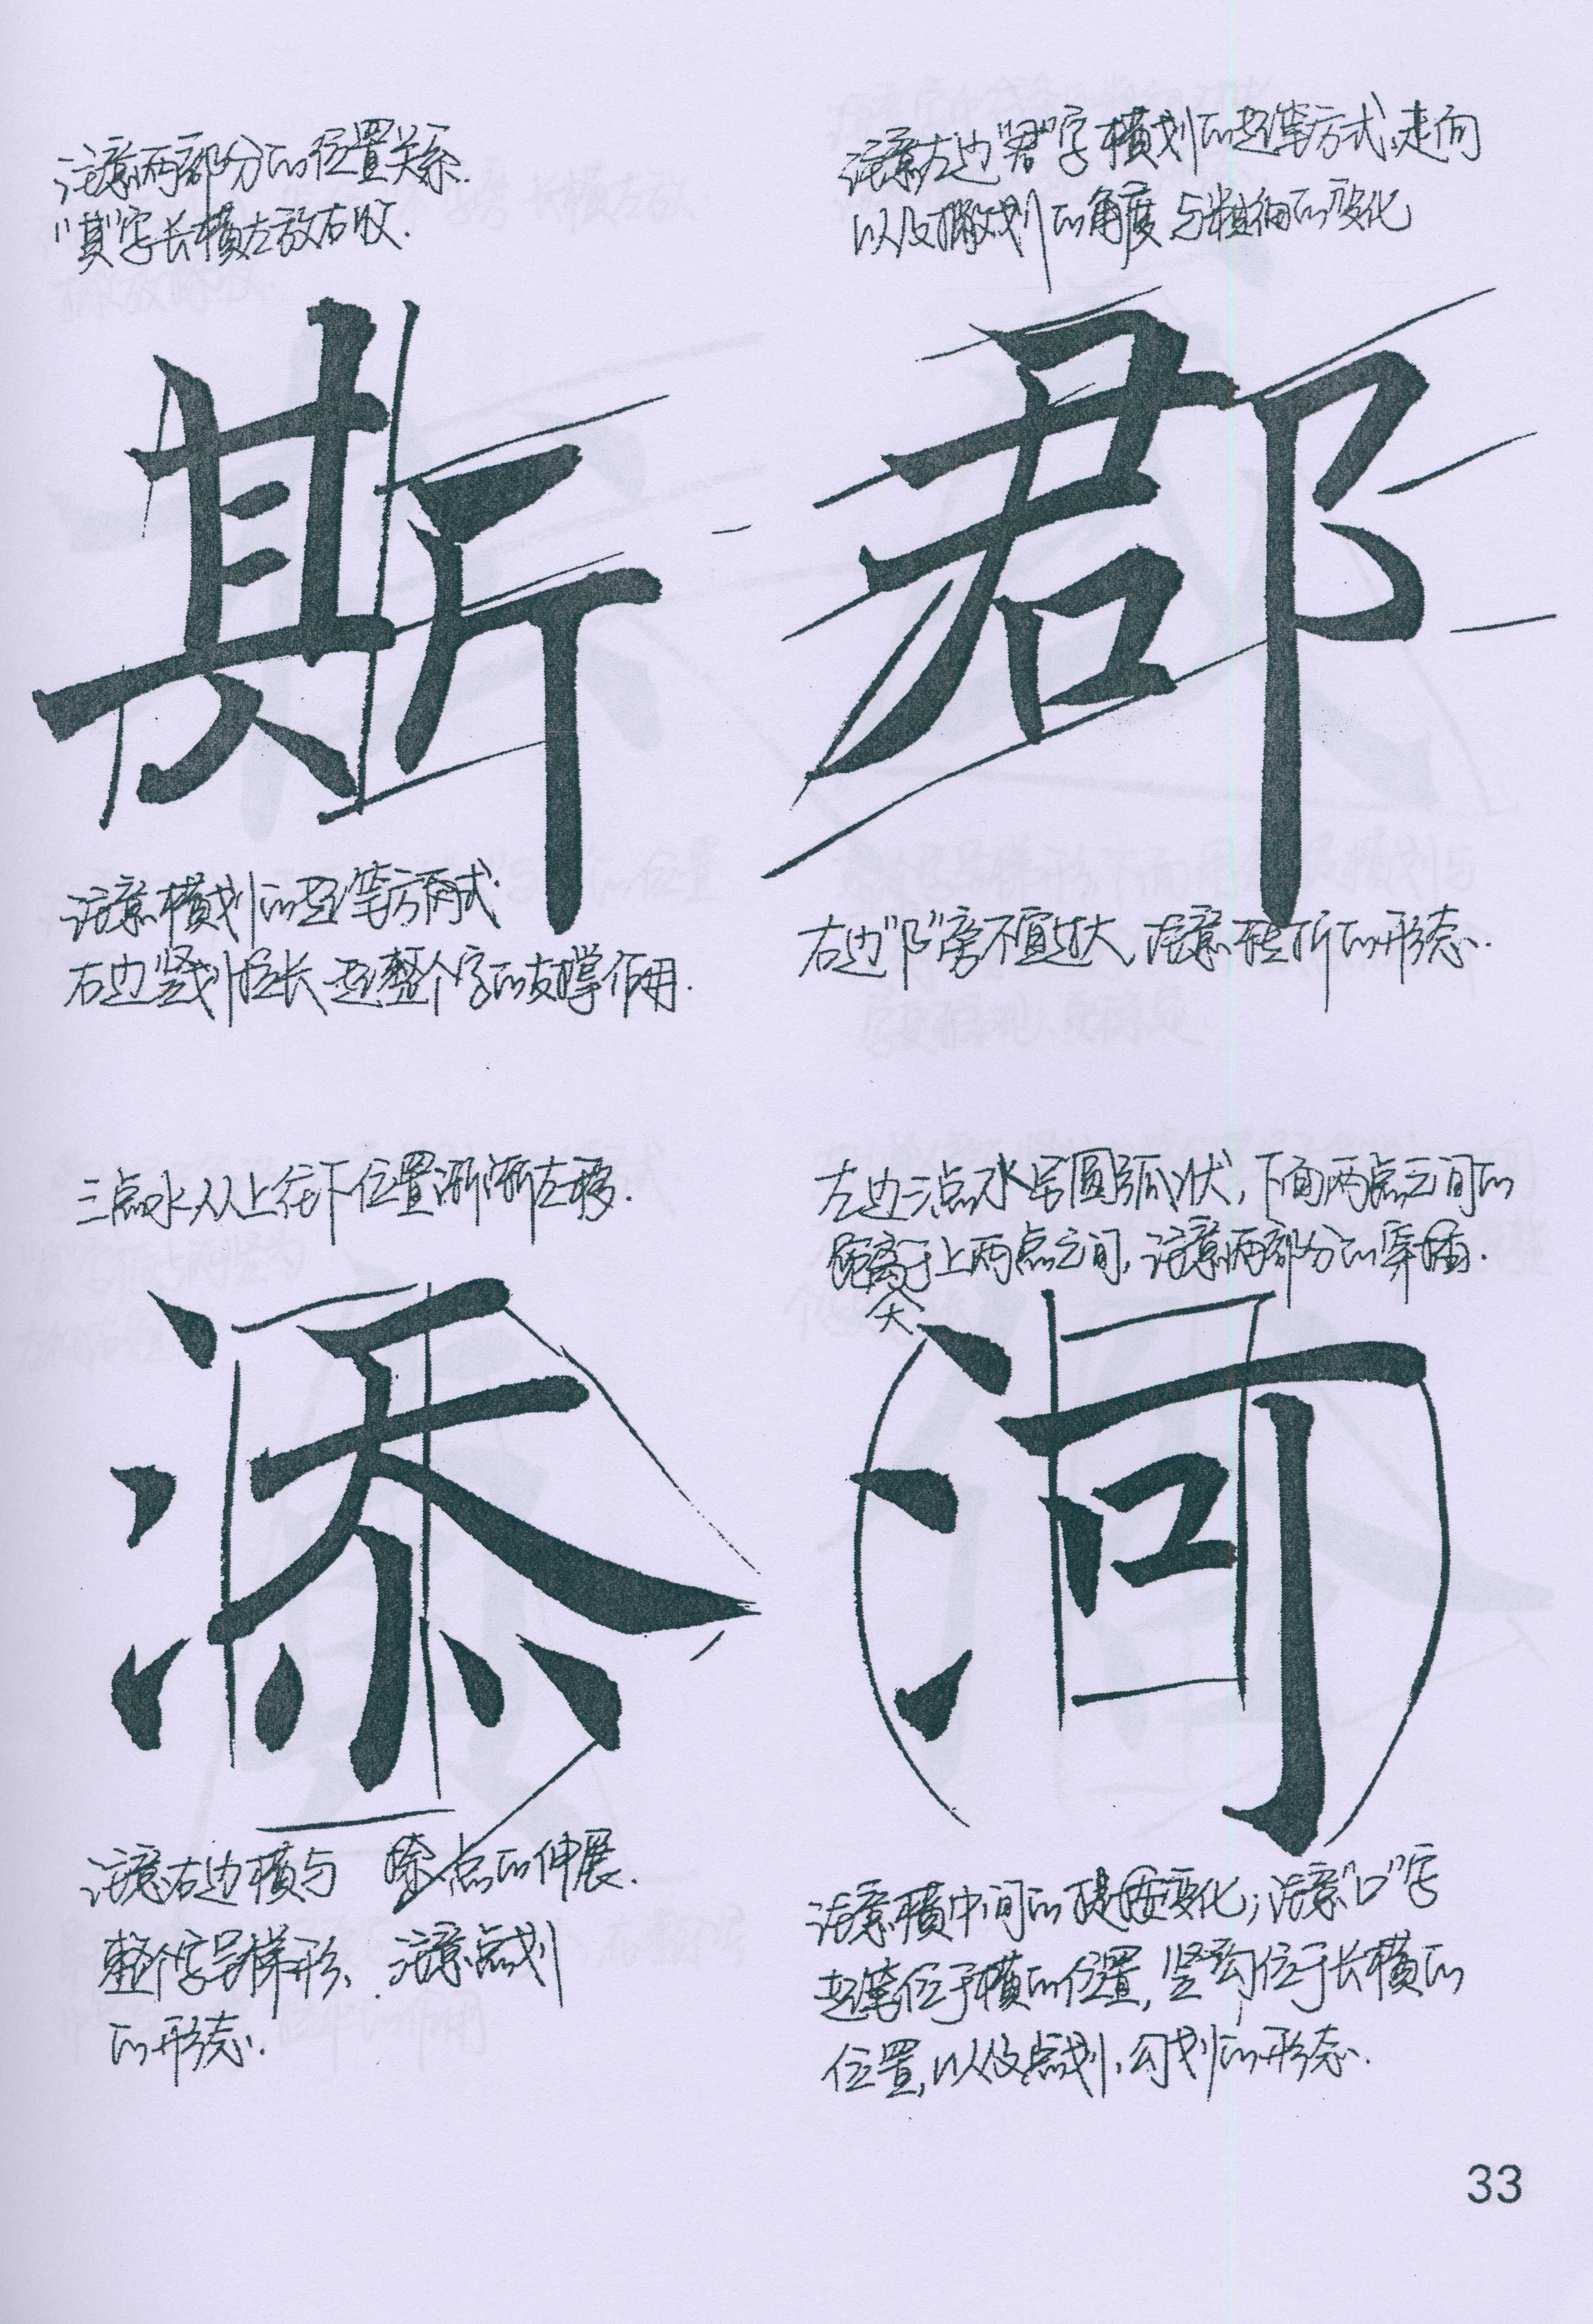 注意两部分的位置关系.
"其"字长横左放右收.
斯
注意横划的起笔方式.
右边竖划拉长起整个字的支撑作用.
注意左边"君"字横划的起笔方式、走向
以及撇划的角度与粗细的变化
郡
右边"阝"旁不宜过大,注意转折的形态.
三点水从上往下位置渐渐左移.
添
注意右边横与捺、点的伸展.
整个字呈梯形、注意点划
的形态.
左边三点水呈圆弧状,下面两点之间的
距离大于上两点之间,注意两部分的穿插.
河
注意横中间的提按变化;注意"口"字
起笔位于横的位置,竖勾位于长横的
位置,以及点划、勾划的形态.
33